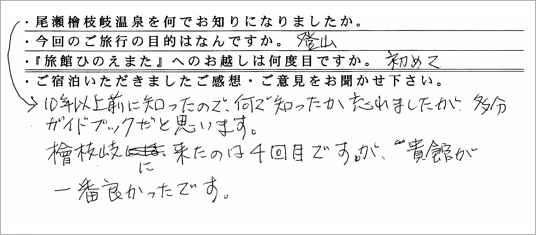 ・尾瀬檜枝岐温泉を何でお知りになりましたか。
・今回のご旅行の目的はなんですか。 登山
・『旅館ひのえまた』へのお越しは何度目ですか。 初めて
・ご宿泊いただきましたご感想・ご意見をお聞かせ下さい。
10年以上前に知ったので、何で知ったか忘れましたが、多分
ガイドブックだと思います。
檜枝岐に来たのは4回目ですが、貴館が
一番良かったです。